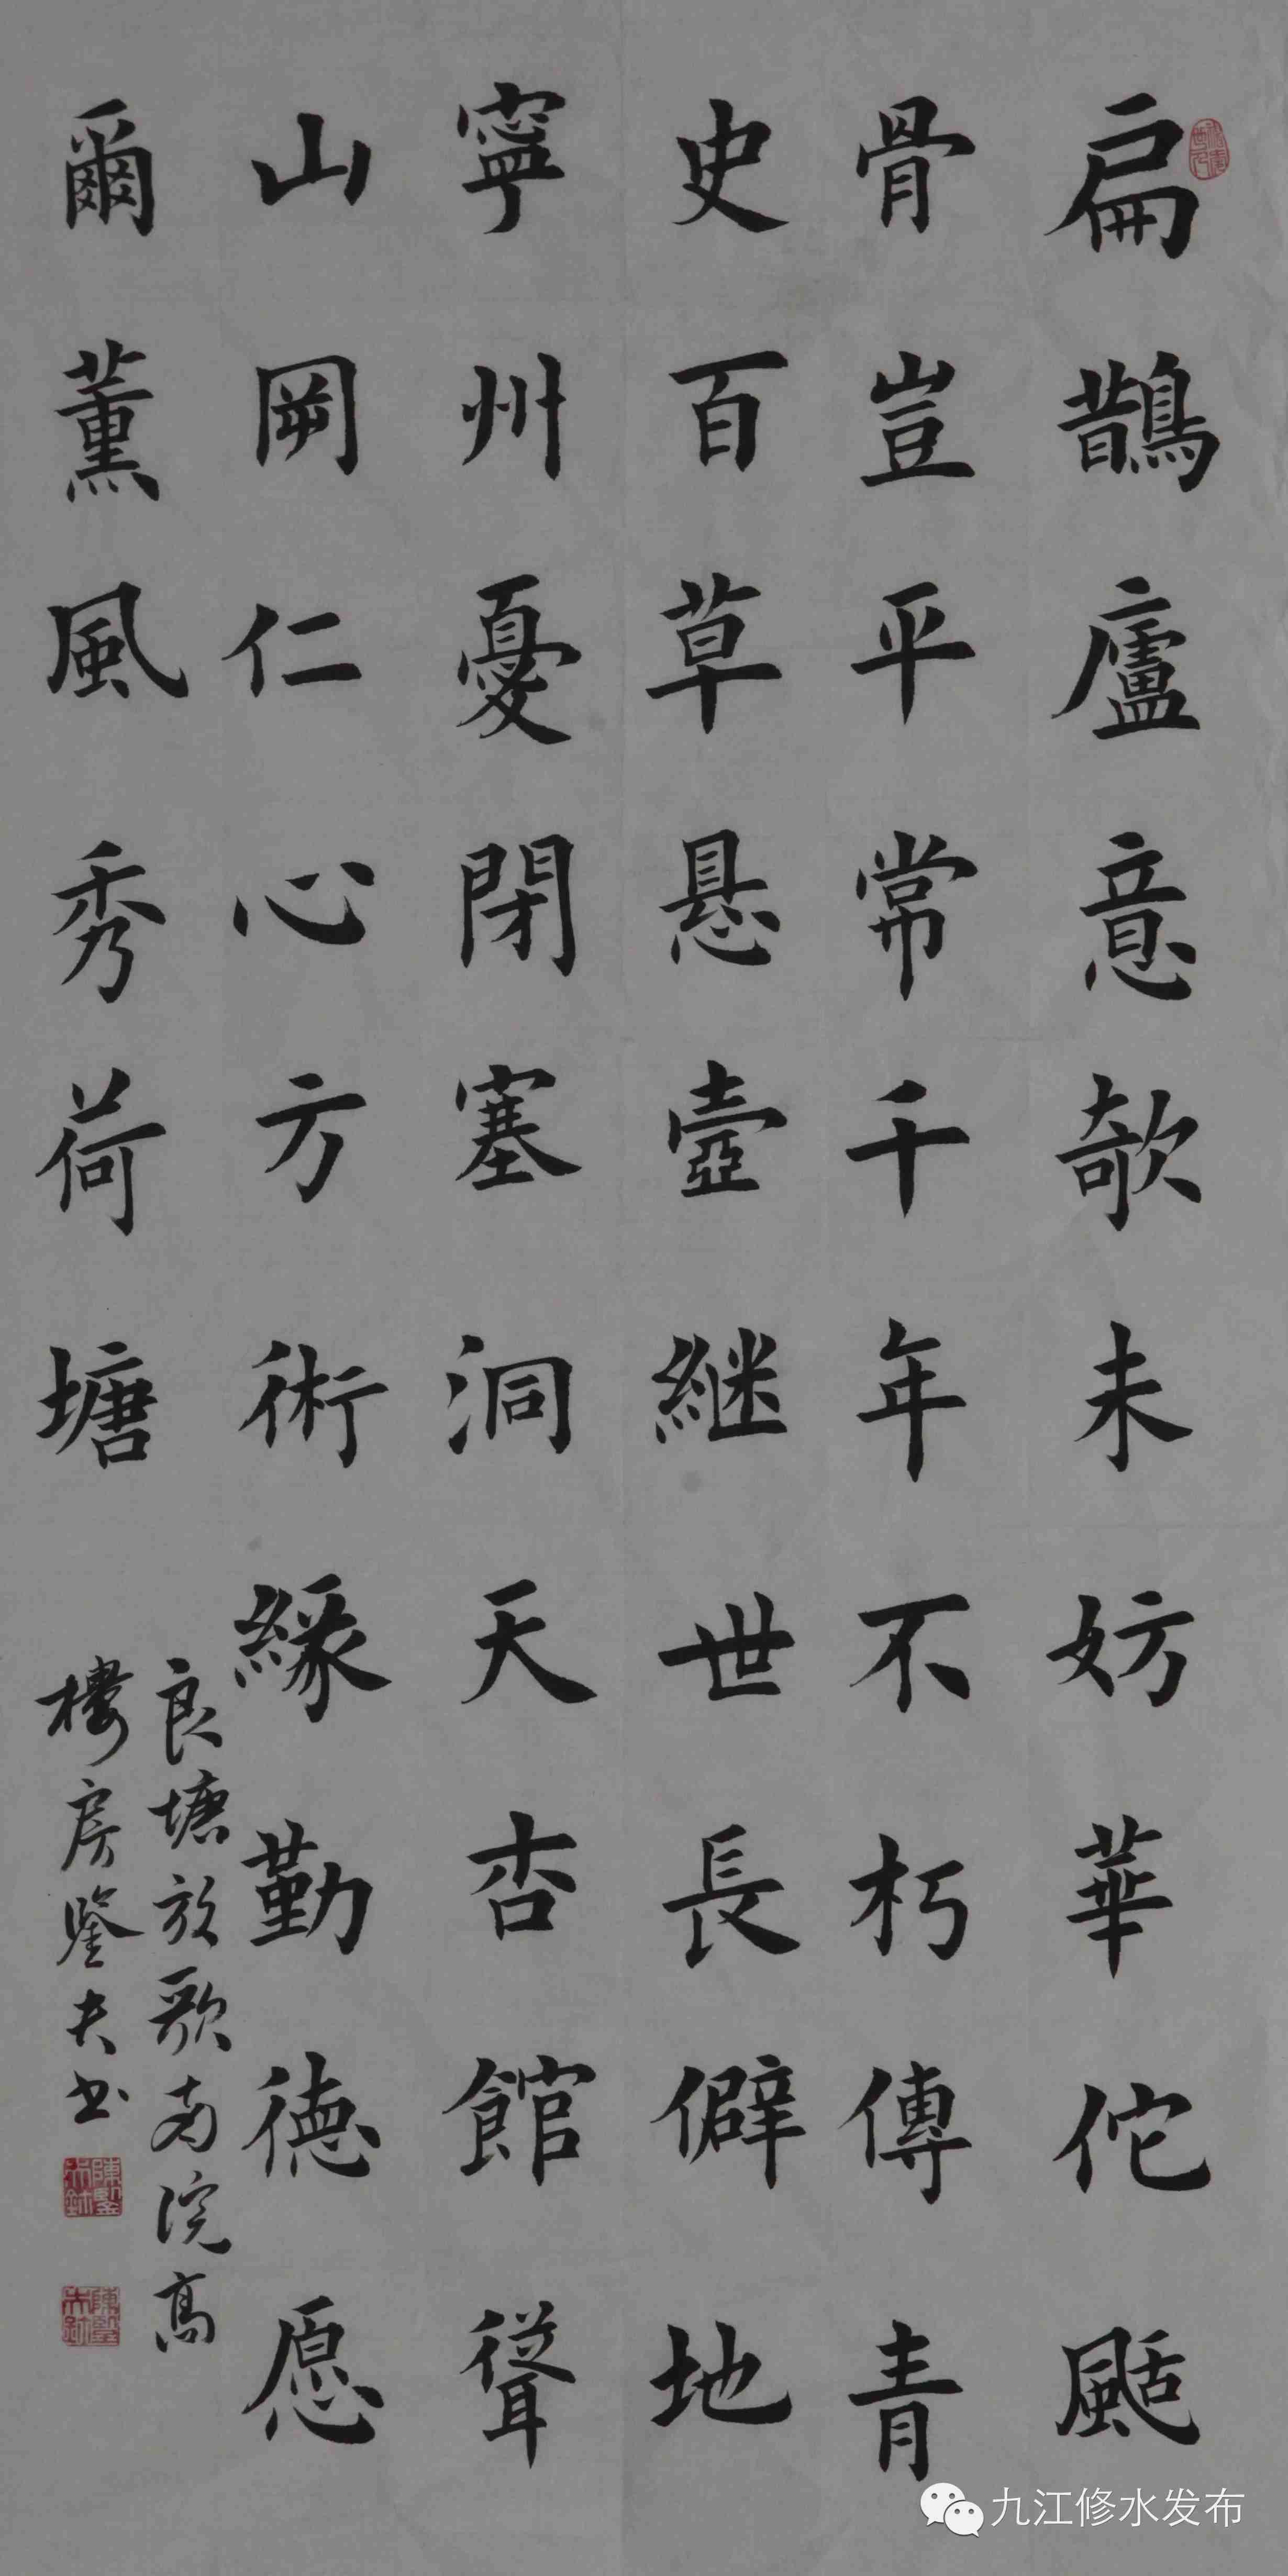 扁鵲廬意欹未妨華佗颳
骨豈平常千年不朽傳青
史百草悬壺継世長僻地
寧州憂閉塞洞天杏館聳
山岡仁心方術緣勤德愿
爾薰風秀荷塘
良塘放歌南院高
樓房鑒夫书
九江修水发布